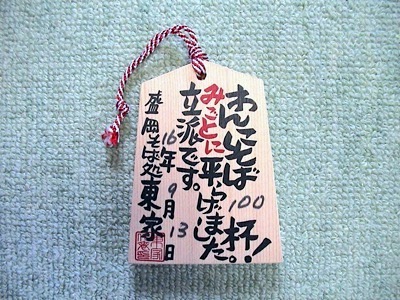 わんこそば100杯!
みごとに平らげました。
立派です。
16年9月13日
盛岡そば処東家